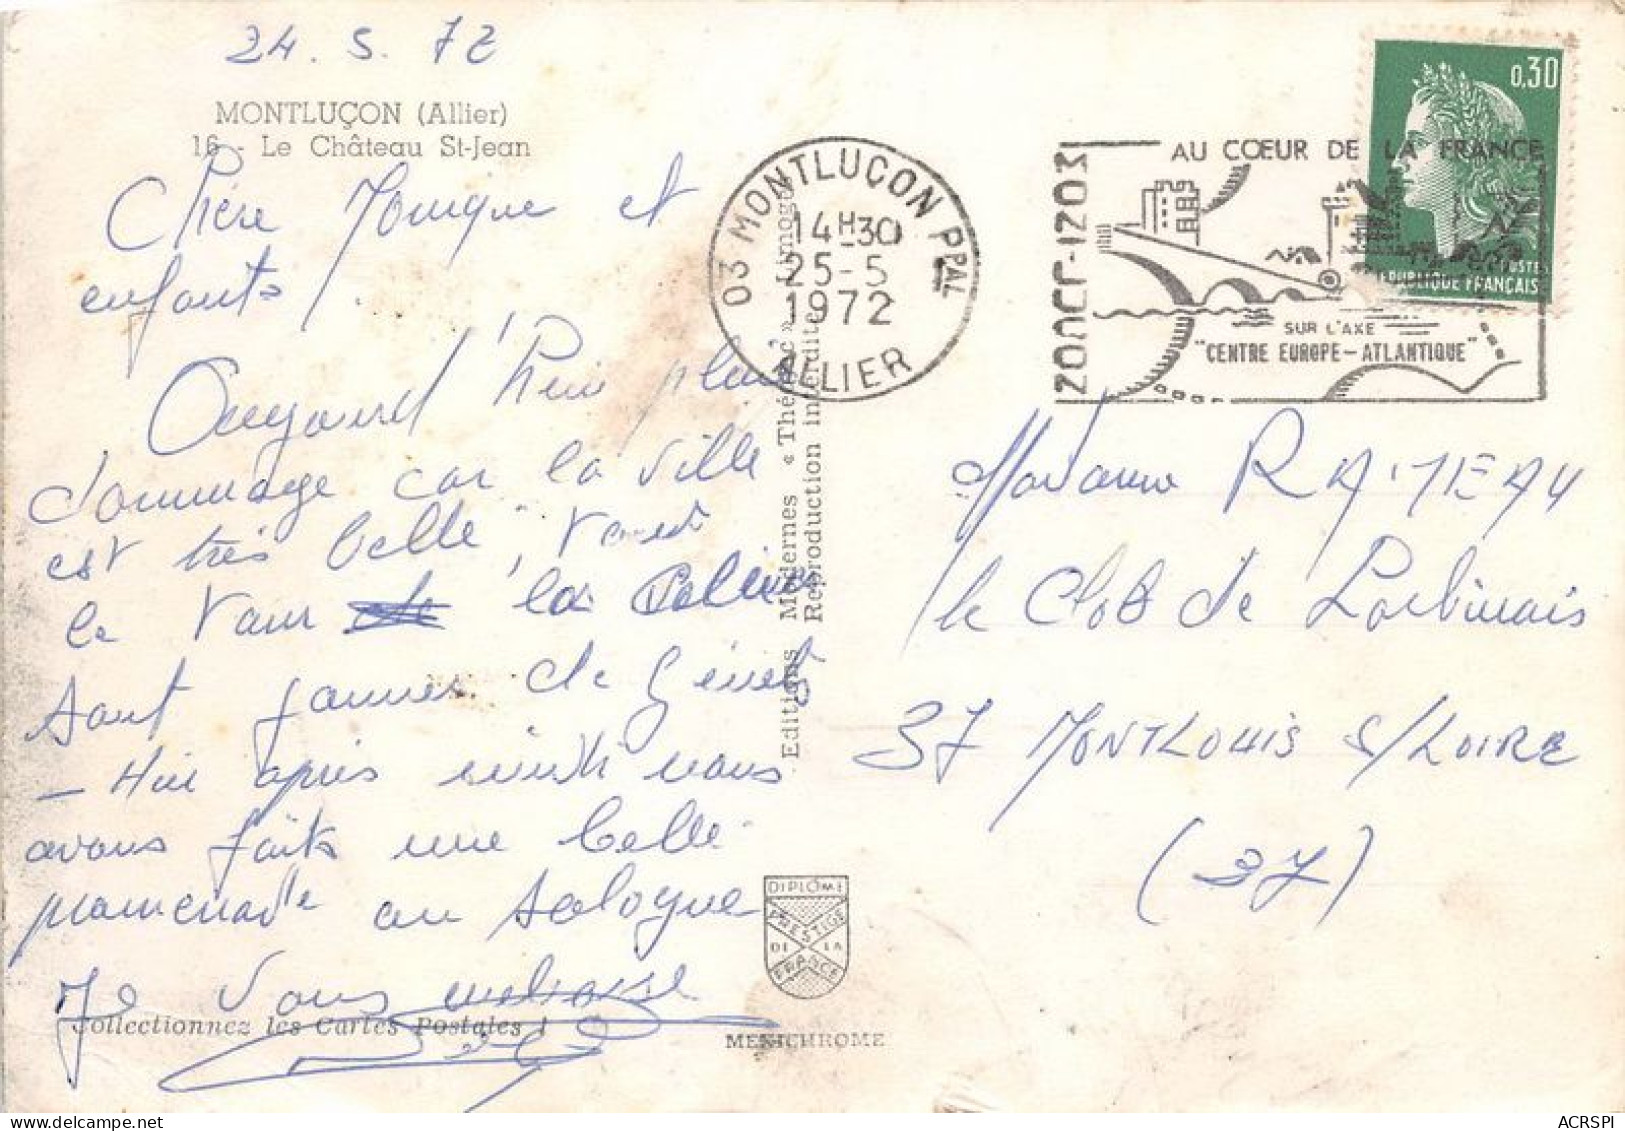 24.5.72
MONTLUÇON (Allier)
16 - Le Château St-Jean
Chère Monique et
enfants
Aujourd'hui pluie
dommage car la ville
est très belle,
le la
sont jaunes de Genets
- Hier après midi nous
avons faits une belle
promenade en Sologne
Je vous embrasse
Collectionnez les Cartes Postales !
Editions Modernes « Théojac » Limoges
Reproduction interdite
DIPLÔME
PRESTIGE
DE LA
FRANCE
MEXICHROME
03 MONTLUÇON PPAL
14H30
25-5
1972
ALLIER
MONTLUÇON
AU CŒUR DE LA FRANCE
SUR L'AXE
"CENTRE EUROPE-ATLANTIQUE"
0,30
POSTES
REPUBLIQUE FRANÇAISE
Madame RAMEAU
le Clos de
37 MONTLOUIS S/LOIRE
(37)
ACRSPI